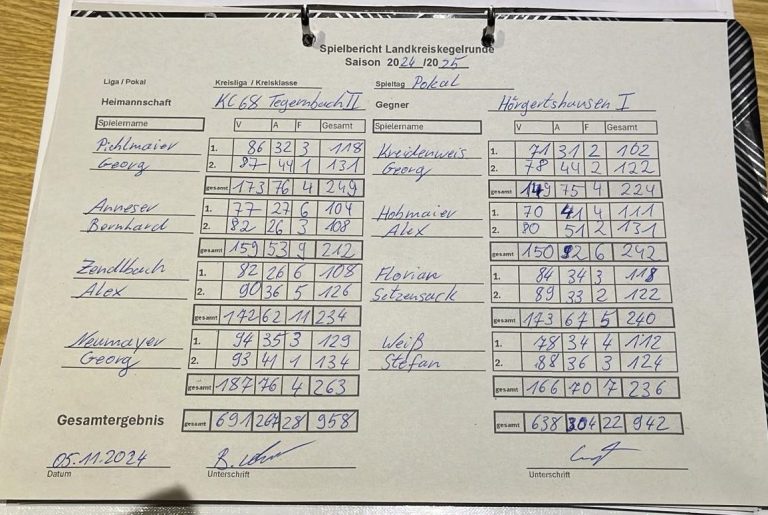 Spielbericht Landkreiskegelrunde
Saison 2024 /2025
Liga / Pokal Kreisliga / Kreisklasse Spieltag Pokal
Heimannschaft KC 68 Tegernbach II Gegner Hörgertshausen I
Spielername V A F Gesamt Spielername V A F Gesamt
Pichlmaier 1. 86 32 3 118 Kreidenweis 1. 71 31 2 102
Georg 2. 87 44 1 131 Georg 2. 78 44 2 122
gesamt 173 76 4 249 gesamt 149 75 4 224
Anneser 1. 77 27 6 104 Hobmaier 1. 70 41 4 111
Bernhard 2. 82 26 3 108 Alex 2. 80 51 2 131
gesamt 159 53 9 212 gesamt 150 92 6 242
Zendlbach 1. 82 26 6 108 Florian 1. 84 34 3 118
Alex 2. 90 36 5 126 Setzensack 2. 89 33 2 122
gesamt 172 62 11 234 gesamt 173 67 5 240
Neumayer 1. 94 35 3 129 Weiß 1. 78 34 4 112
Georg 2. 93 41 1 134 Stefan 2. 88 36 3 124
gesamt 187 76 4 263 gesamt 166 70 7 236
Gesamtergebnis gesamt 691 267 28 958 gesamt 638 304 22 942
05.11.2024
Datum Unterschrift Unterschrift